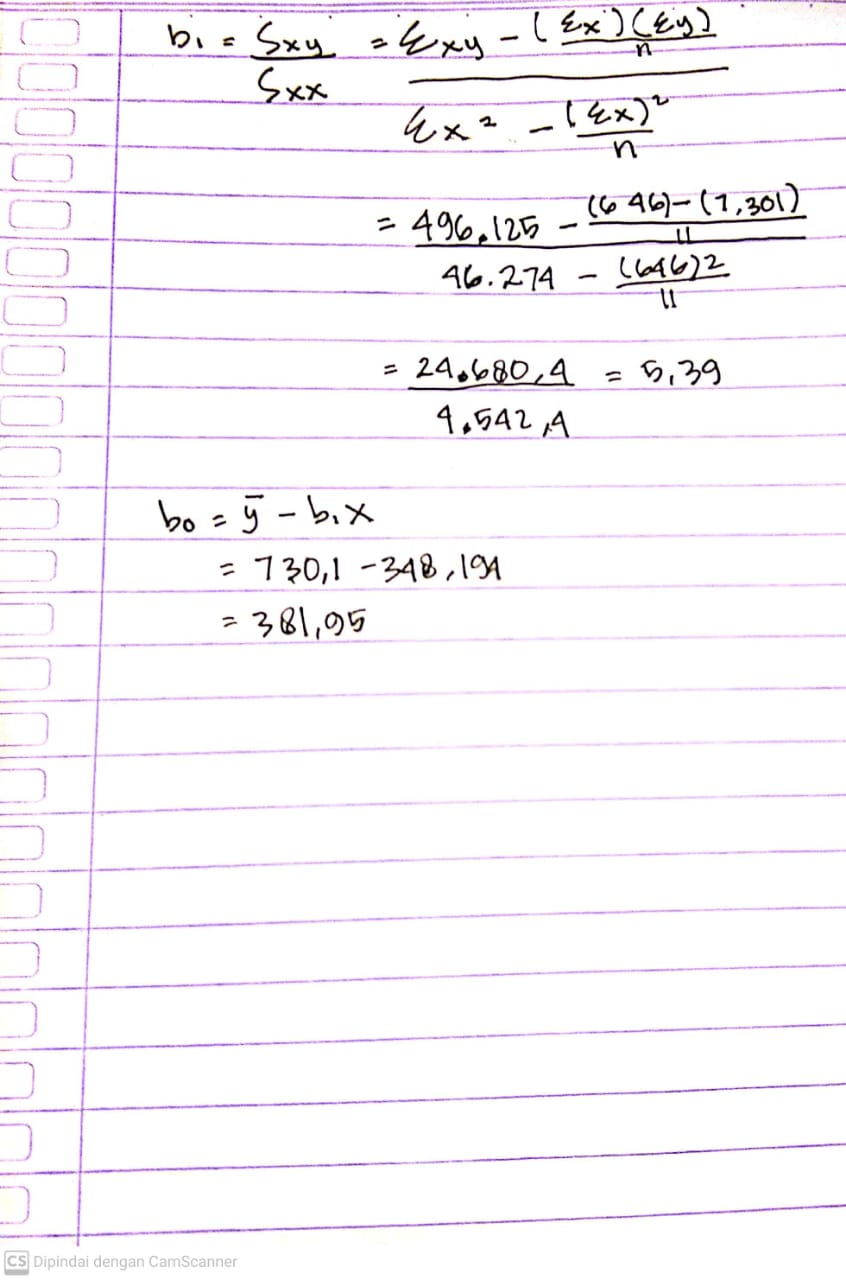 b₁ = Sxy = Σxy - (Σx)(Σy)
n
Sxx
Σx² - (Σx)²
n
= 496.125 - (646)-(7,301)
11
46.274 - (646)2
11
= 24.680,4 = 5,39
4.542,4
bo = ȳ - b₁x
= 730,1 - 348,194
= 381,95
CS Dipindai dengan CamScanner